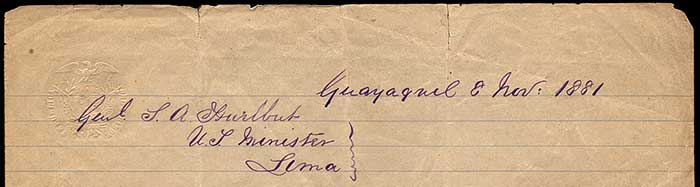 Guayaquil 8 Nov: 1881
Genl. S. A Hurlbut
U. S Minister
Lima